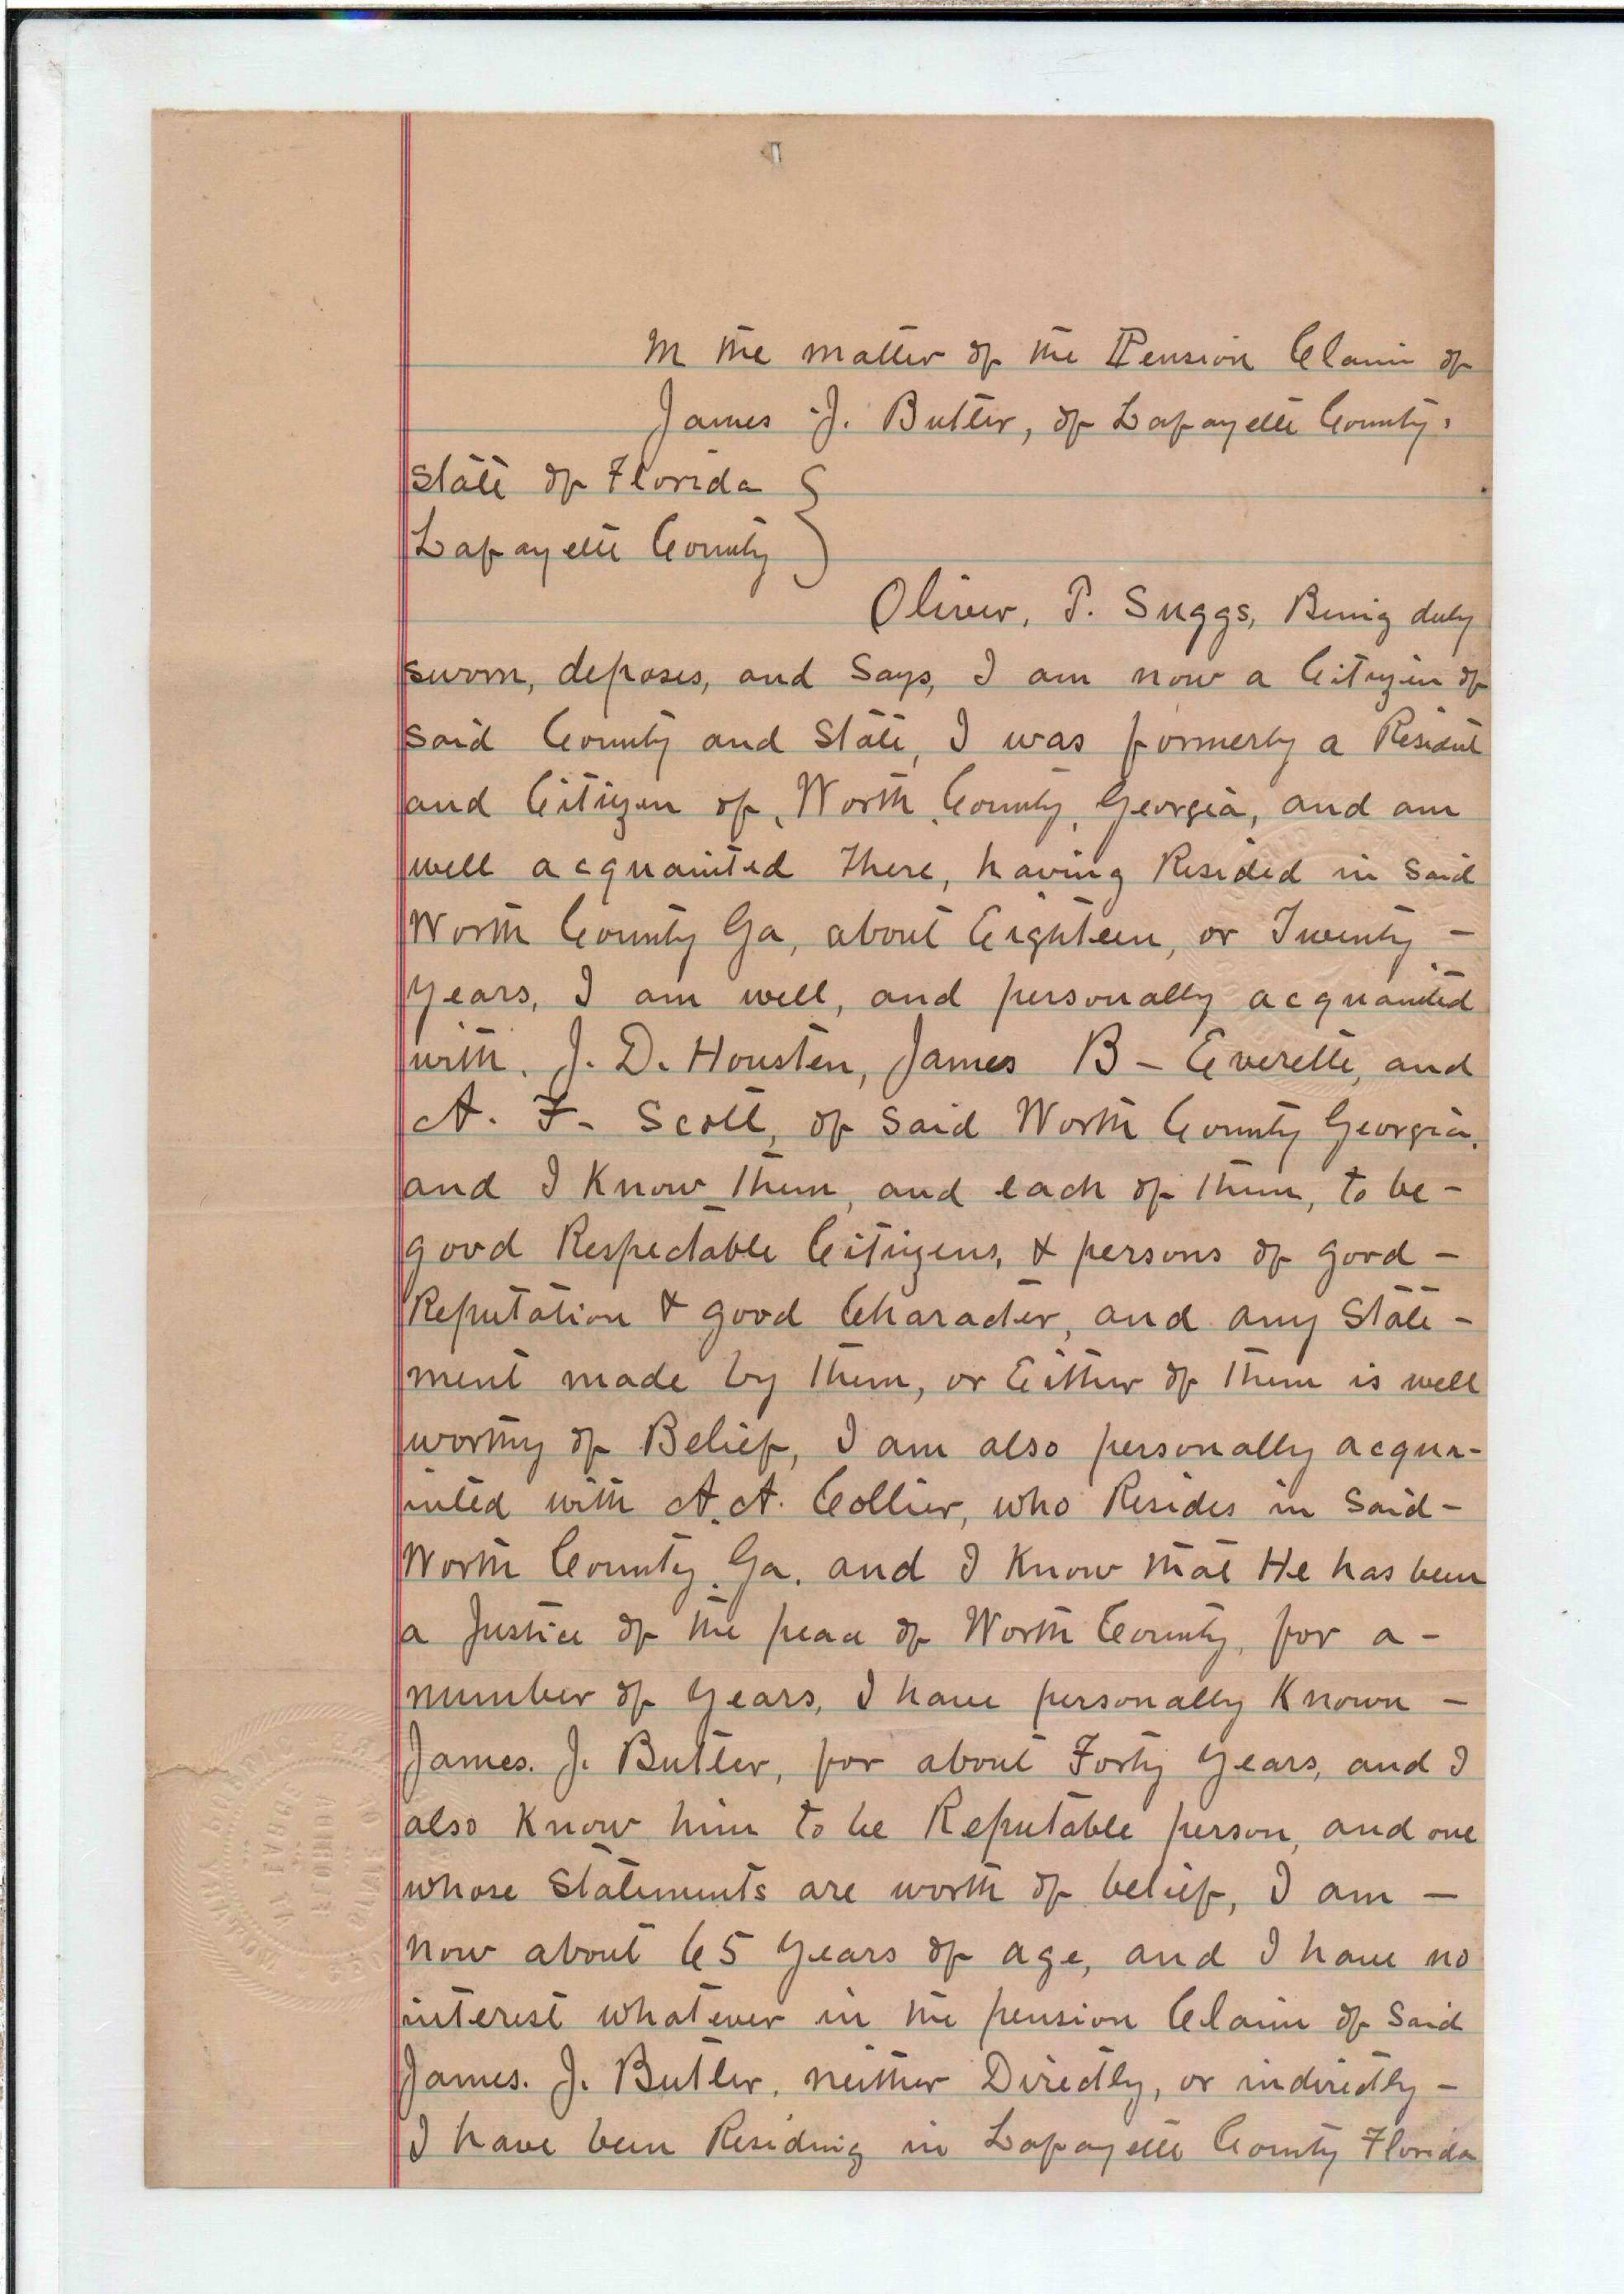 In the matter of the Pension Claim of
James J. Butler, of Lafayette County.
State of Florida }
Lafayette County }
Oliver, P. Suggs, Being duly
sworn, deposes, and Says, I am now a Citizen of
said County and State, I was formerly a Resident
and Citizen of, Worth, County, Georgia, and am
well acquainted there, having Resided in Said
Worth County Ga, about Eighteen, or Twenty -
years, I am well, and personally acquainted
with, J. D. Housten, James B - Everette, and
A. F - Scott, of Said Worth County Georgia,
and I Know them, and each of them, to be -
good Respectable Citizens, & persons of good -
Reputation & good Character, and any State -
ment made by them, or Either of them is well
worthy of Belief, I am also personally acqua-
inted with A. A. Collier, who Resides in Said -
Worth County, Ga, and I Know that He has been
a Justice of the peace of Worth County, for a -
number of years, I have personally Known -
James. J. Butler, for about Forty years, and I
also Know him to be Reputable person, and one
whose Statements are worth of belief, I am -
now about 65 years of age, and I have no
interest whatever in the pension Claim of Said
James. J. Butler, neither Directly, or indirectly -
I have been Residing in Lafayette County Florida
NOTARY PUBLIC
STATE OF
FLORIDA
AT LARGE